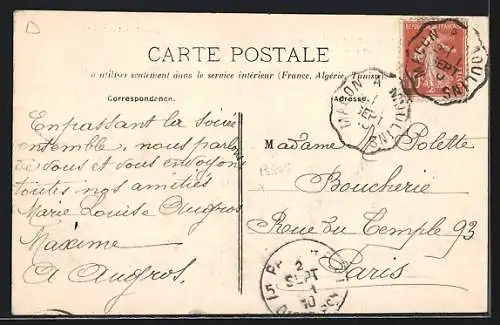 D
CARTE POSTALE
à utiliser seulement dans le service intérieur (France, Algérie, Tunisie)
Correspondance.
Adresse.
En passant la soirée
ensemble, nous parlons
de vous et vous envoyons
toutes nos amitiés
Marie Louise Augros
Maxime
A Augros.
Madame Polette
Boucherie
Rue du Temple 93
Paris
MACON A MOULINS
MOULINS
15
2
SEPT
10